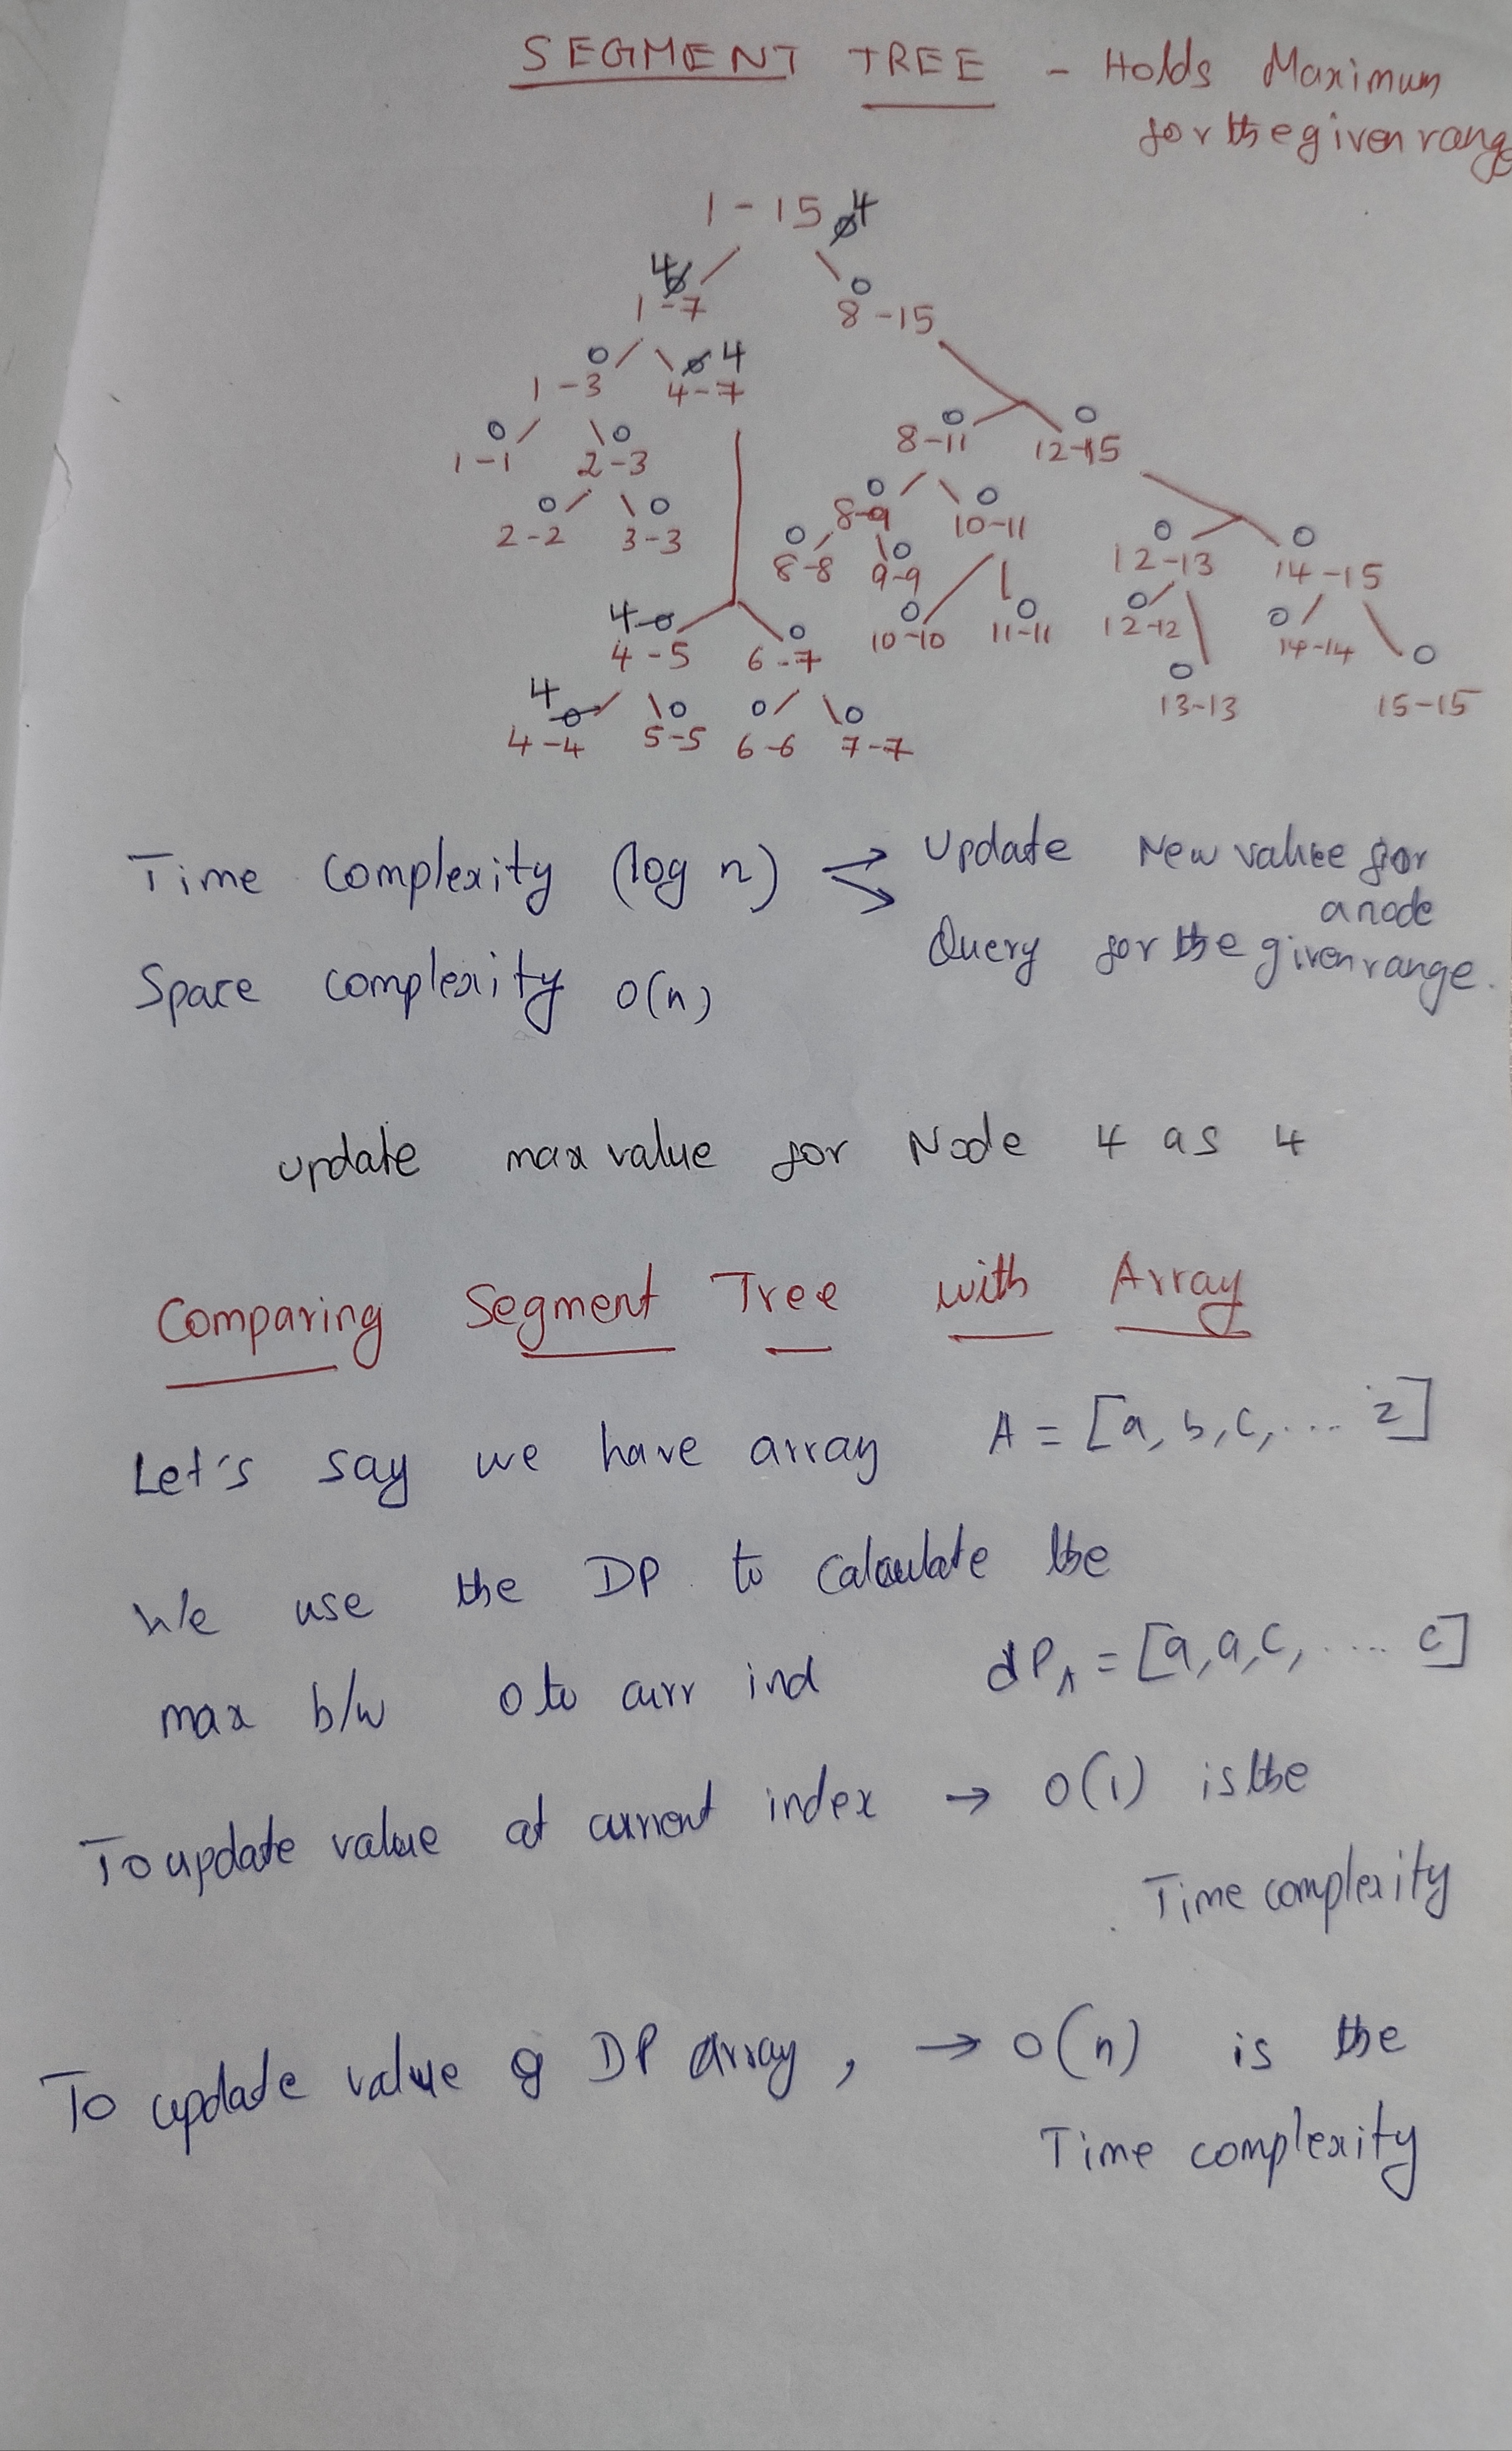 SEGMENT TREE - Holds Maximum
for the given range
1-15 0 4
4 0 0
1-7 8-15
0 0 4
1-3 4-7
0 0 0 0
1-1 2-3 8-11 12-15
0 0 0 0
2-2 3-3 8-9 10-11
0 0 0 0
8-8 9-9 12-13 14-15
4 0 0 0 0 0 0
4-5 6-7 10-10 11-11 12-12 14-14
4 0 0 0 0 0 0
4-4 5-5 6-6 7-7 13-13 15-15
Time complexity (log n) → Update New value for
a node
→ Query for the given range.
Space complexity O(n)
update max value for Node 4 as 4
Comparing Segment Tree with Array
Let's say we have array A = [a, b, c, .... z]
We use the DP to calculate the
max b/w 0 to curr ind dPA = [a, a, c, .... c]
To update value at current index → O(1) is the
Time complexity
To update value of DP array, → O(n) is the
Time complexity